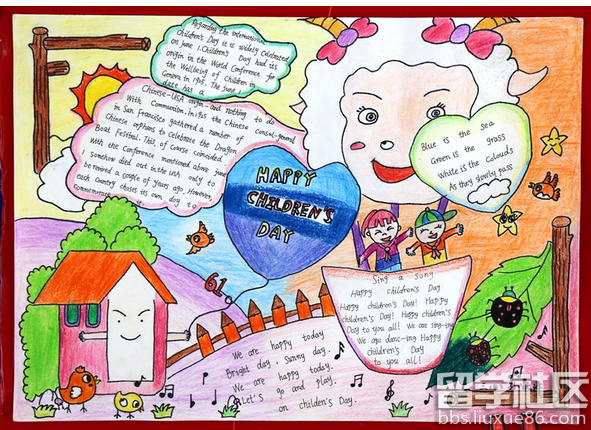 Regarding the Internationa
Children's Day it is widely celebrated
on June 1. Children's Day had its
origin in the World Conference for
the Wellbeing of Children in
Geneva in 1925. The June 1
date has a
Chinese-USA origin and nothing to do
With Communism. In 1925 the Chinese consul-general
in San Francisco gathered a number of
Chinese orphans to celebrate the Dragon
Boat Festival. This, of course coincided
With the Conference mentioned above June
somehow died out in the USA only to
be revived a couple of years ago. However,
each Country chose its own day to
commemorate it
HAPPY
CHILDREN'S
DAY
61
Blue is the sea
Green is the grass
White is the Colouds
As they slowly pass
Sing a song
Happy children's Day
Happy children's Day! Happy
children's Day! Happy children's
Day to you all! We are sing-ing
We are danc-ing Happy
children's Day
to you all!
We are happy today.
Bright day, Sunny day.
We are happy today.
Let's go and play.
on childen's Day.
留学社区
bbs.liuxue86.com